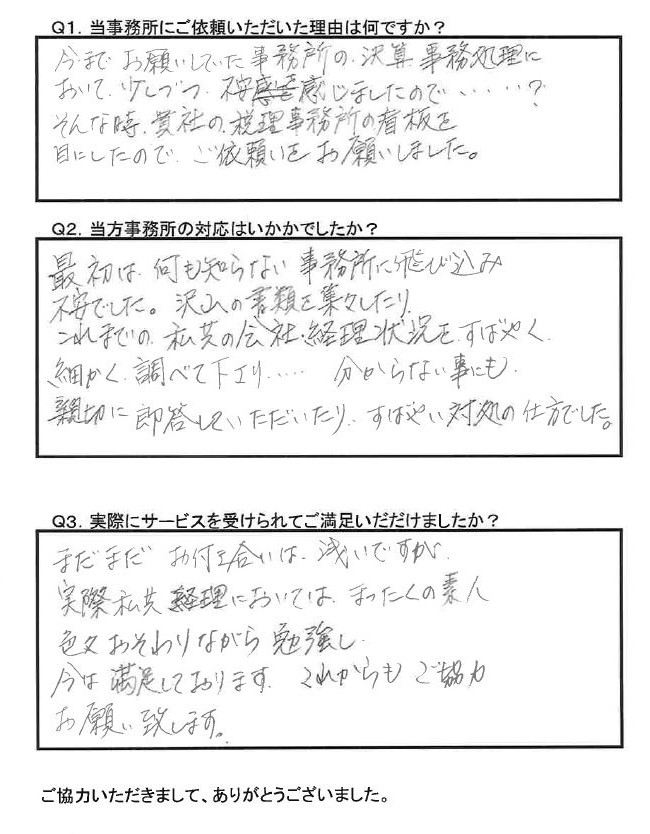 Q1. 当事務所にご依頼いただいた理由は何ですか？
今までお願いしていた事務所の、決算、事務処理に
おいて、少しづつ、不安感を感じましたので、・・・・・?
そんな時、貴社の、税理事務所の看板を
目にしたので、ご依頼いをお願いしました。
Q2. 当方事務所の対応はいかかでしたか？
最初は、何も知らない事務所に飛び込み
不安でした。沢山の書類を集々したり、
これまでの、私共の会社・経理状況を、すばやく、
細かく、調べて下さり、・・・・・ 分からない事にも、
親切に即答していただいたり、すばやい対処の仕方でした。
Q3. 実際にサービスを受けられてご満足いだだけましたか？
まだまだ お付き合いは、浅いですが、
実際私共、経理においては、まったくの素人
色々おそわりながら勉強し、
今は満足しております。これからもご協力
お願い致します。
ご協力いただきまして、ありがとうございました。